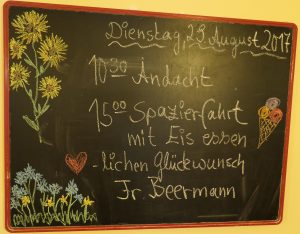 Dienstag, 23 August 2017
10³⁰ Andacht
15⁰⁰ Spazierfahrt
mit Eis essen
-lichen Glückwunsch
Fr. Beermann